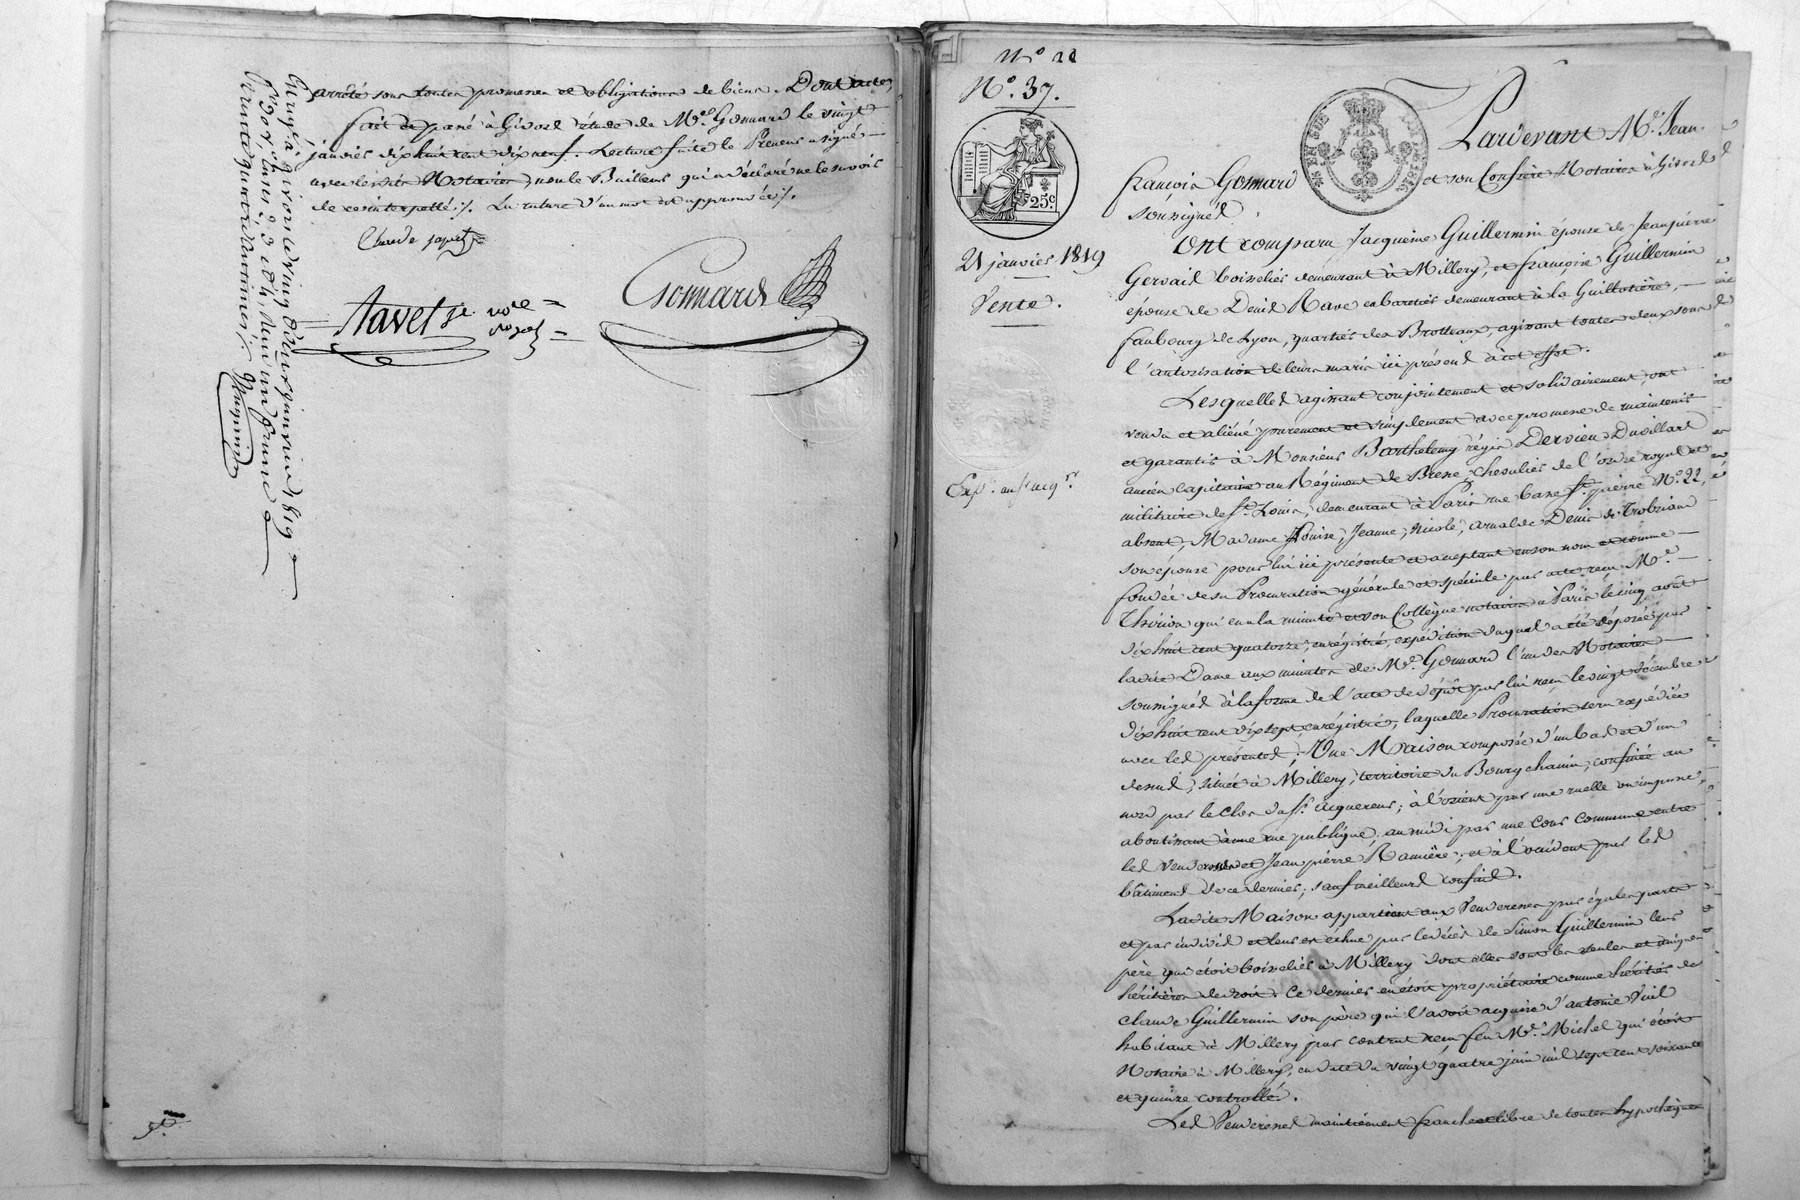 arrêté sous toutes promesses et obligations de biens. Dont acte,
fait et passé à Givors étude de Me. Gonnard le vingt
janvier dix huit cent dix neuf. Lecture faite le Preneur a signé
avec lesdits Notaires, non le Bailleur qui a déclaré ne le savoir
de ce interpellé ;/. La rature d'un mot est approuvée ;/.
Claude
Gonnard
Enregé à Givors le vingt deux janvier 1819
N° 28
N°. 37.
25c.
21 janvier 1819
Vente.
Pardevant Me. Jean
françois Gonnard et son Confrère Notaires à Givors
soussignés
Ont comparu Jacquème Guillermin épouse de Jean pierre
Gervais boisselier demeurant à Millery, et françoise Guillermin
épouse de Denis Rave cabaretier demeurant à la Guillotière,
faubourg de Lyon, quartier des Brotteaux, agissant toutes deux sous
l'autorisation de leurs maris ici présens à cet effet.
Lesquelles agissant conjointement et solidairement, ont
vendu et aliéné purement et simplement avec promesse de maintenir
et garantir à Monsieur Barthelemy régis Dervieu Duvillars
ancien Capitaine au Régiment de Bresse, Chevalier de l'ordre royal et
militaire de St. Louis, demeurant à Paris rue basse St. pierre N°. 22,
absent, Madame Louise, Jeanne, Nicole, Arnalde Denis de Trobriand
son épouse pour lui ici présente et acceptant en son nom et comme
fondée de sa Procuration générale et spéciale par acte reçu Me.
Thirion qui en a la minute et son Collègue notaires à Paris le cinq août
dix huit cent quatorze, enregistré, expédition duquel a été déposée par
ladite Dame aux minutes de Me. Gonnard l'un des Notaires
soussignés à la forme de l'acte de dépôt par lui reçu le vingt décembre
dix huit cent dix sept enregistré, laquelle Procuration sera expédiée
avec les présentes ; Une Maison composée d'un bas et d'un
dessus, située à Millery, territoire du Bourg chanin, confinée au
nord par le Clos du Sr. Acquereur ; à l'orient par une ruelle ou impasse,
aboutissant à une rue publique, au midi par une Cour commune entre
les Venderesses et Jean pierre Ramière ; et à l'occident par les
bâtimens de ce dernier ; sauf meilleurs confins.
Ladite Maison appartient aux Venderesses par égales parts
et par indivis et leur est échue par le décès de Simon Guillermin leur
père qui étoit boisselier à Millery dont elles sont les seules et uniques
héritières de droit. Ce dernier en étoit propriétaire comme héritier de
claude Guillermin son père qui l'avoit acquise d'antoine
habitant à Millery par contrat reçu feu Me. Michel qui étoit
Notaire à Millery, en date du vingt quatre juin mil sept cent soixante
et quinze controllé.
Les Venderesses maintiennent franche et libre de toutes hypothèques